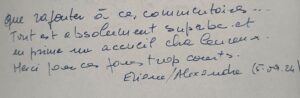 que rajouter à ces commentaires...
Tout est absolument superbe et
en prime un accueil chaleureux.
Merci pour ces jours trop courts.
Etienne/Alexandra (5.09.24)